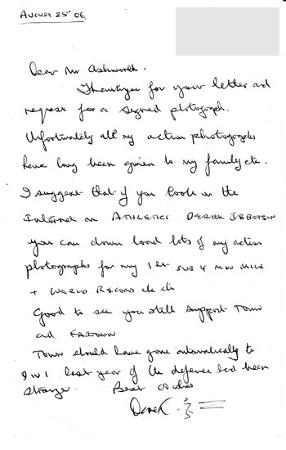 AUGUST 25' 06.
Dear Mr Ashworth.
Thankyou for your letter and
request for a signed photograph.
Unfortunately all my action photographs
have long been given to my family etc.
I suggest that if you look in the
Internet on ATHLETICS DEREK IBBOTSON
you can down load lots of my action
photographs for my 1st SUB 4 MIN MILE
+ WORLD RECORD etc etc
Good to see you still support Town
and FARTOWN.
Town should have gone automatically to
DIV 1 last year if the defence had been
stronger. Best wishes
Derek